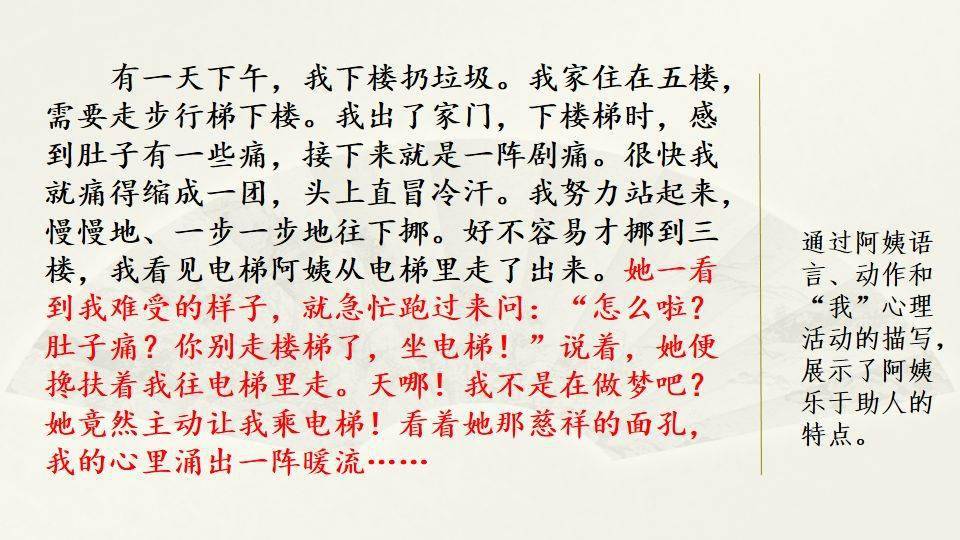 有一天下午，我下楼扔垃圾。我家住在五楼，
需要走步行梯下楼。我出了家门，下楼梯时，感
到肚子有一些痛，接下来就是一阵剧痛。很快我
就痛得缩成一团，头上直冒冷汗。我努力站起来，
慢慢地、一步一步地往下挪。好不容易才挪到三
楼，我看见电梯阿姨从电梯里走了出来。她一看
到我难受的样子，就急忙跑过来问：“怎么啦？
肚子痛？你别走楼梯了，坐电梯！”说着，她便
搀扶着我往电梯里走。天哪！我不是在做梦吧？
她竟然主动让我乘电梯！看着她那慈祥的面孔，
我的心里涌出一阵暖流……
通过阿姨语
言、动作和
“我”心理
活动的描写，
展示了阿姨
乐于助人的
特点。